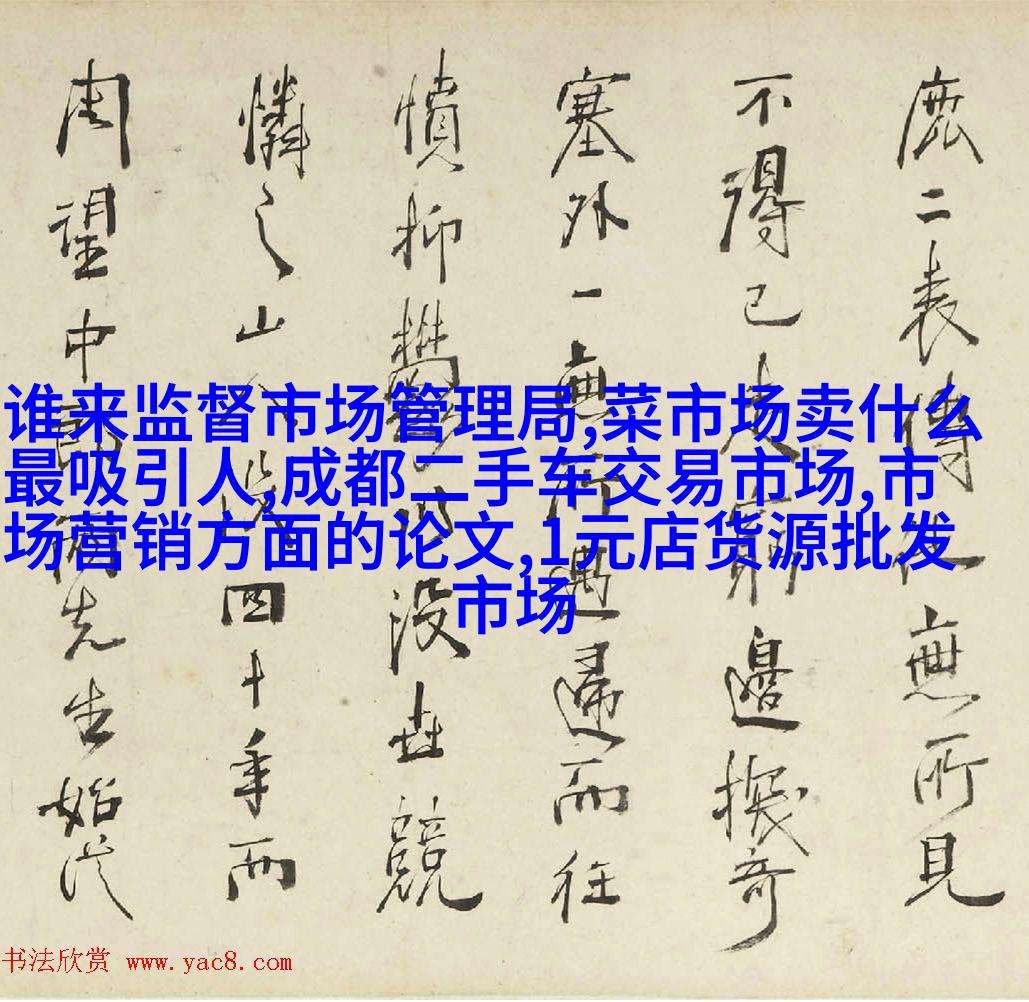 二表傳無所見
不得已窮邊探奇
塞外一無所遇歸而往
憤抑鬱以沒世競
憐之山沒四十年而
周望中郎兩先生始從
谁来监督市场管理局,菜市场卖什么
最吸引人,成都二手车交易市场,市
场营销方面的论文,1元店货源批发
市场
书法欣赏 www.yac8.com